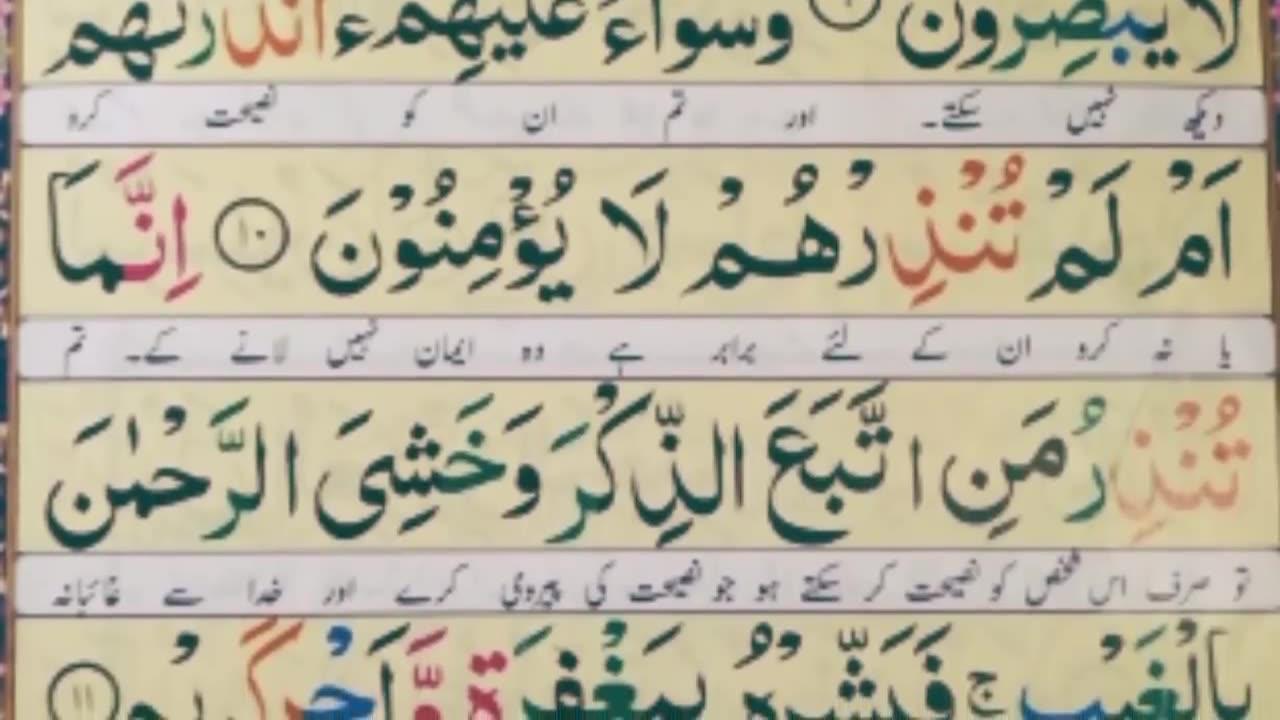 لَا یُبْصِرُوْنَ ۹ وَسَوَآءٌ عَلَیْهِمْ ءَاَنْذَرْتَهُمْ
دیکھ نہیں سکتے۔ اور تم ان کو نصیحت کرو
اَمْ لَمْ تُنْذِرْهُمْ لَا یُؤْمِنُوْنَ ۱۰ اِنَّمَا
یا نہ کرو ان کے لئے برابر ہے وہ ایمان نہیں لانے کے۔ تم
تُنْذِرُ مَنِ اتَّبَعَ الذِّكْرَ وَخَشِیَ الرَّحْمٰنَ
تو صرف اس شخص کو نصیحت کر سکتے ہو جو نصیحت کی پیروی کرے اور خدا سے غائبانہ
بِالْغَیْبِ ج فَبَشِّرْهُ بِمَغْفِرَةٍ وَّاَجْرٍ كَرِیْمٍ ۱۱